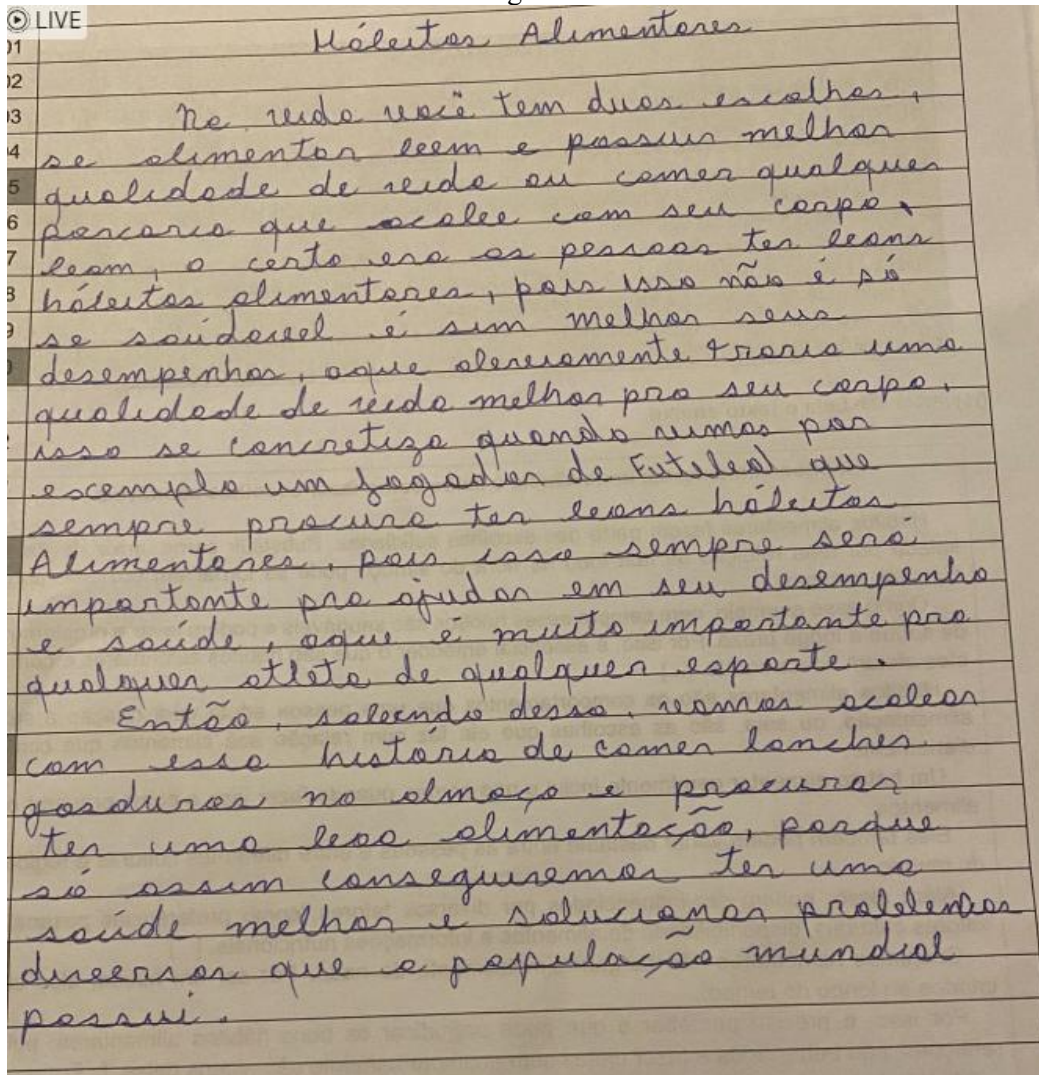 LIVE
Hábitos Alimentares
01
02
03 Na vida você tem duas escolhas,
04 se alimentar bem e possuir melhor
5 qualidade de vida ou comer qualquer
6 porcaria que acabe com seu corpo.
7 bom, o certo era as pessoas ter bons
8 hábitos alimentares, pois isso não é só
9 se saúdavel é sim melhor seus
desempenhos, aque obviamente traria uma
qualidade de vida melhor pro seu corpo.
isso se concretiza quando vimos por
excemplo um jogador de Futebol que
sempre procura ter bons hábitos
Alimentares, pois isso sempre será
importante pra ajudar em seu desempenho
e saúde, aque é muito importante pra
qualquer atleta de qualquer esporte.
Então, sabendo desso, vamos acabar
com essa história de comer lanches
gosduras no almoço e procurar
ter uma boa alimentação, porque
só assim conseguiremos ter uma
saúde melhor e solucionar problemas
diversos que a população mundial
possui.